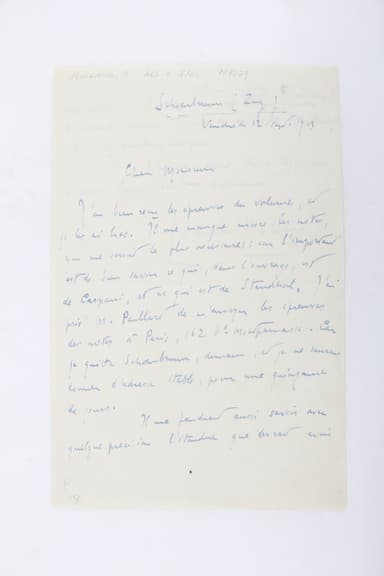 Schoenbrunn (Zug)
Vendredi 12 sept. 1913
Cher Monsieur
J'ai bien reçu les épreuves du volume, et
je les ai lues. Il me manque encore les notes,
qui me seront le plus nécessaires: car l'important
est de bien savoir ce qui, dans l'ouvrage, est
de Carpani, et ce qui est de Stendhal. J'ai
prié M. Paillard de m'envoyer les épreuves
des notes à Paris, 162 Bd Montparnasse. Car
je quitte Schoenbrunn, demain, et je ne saurais
donner d'adresse stable, pour une quinzaine
de jours.
Il me faudrait aussi savoir avec
quelque précision l'étendue que devrait avoir